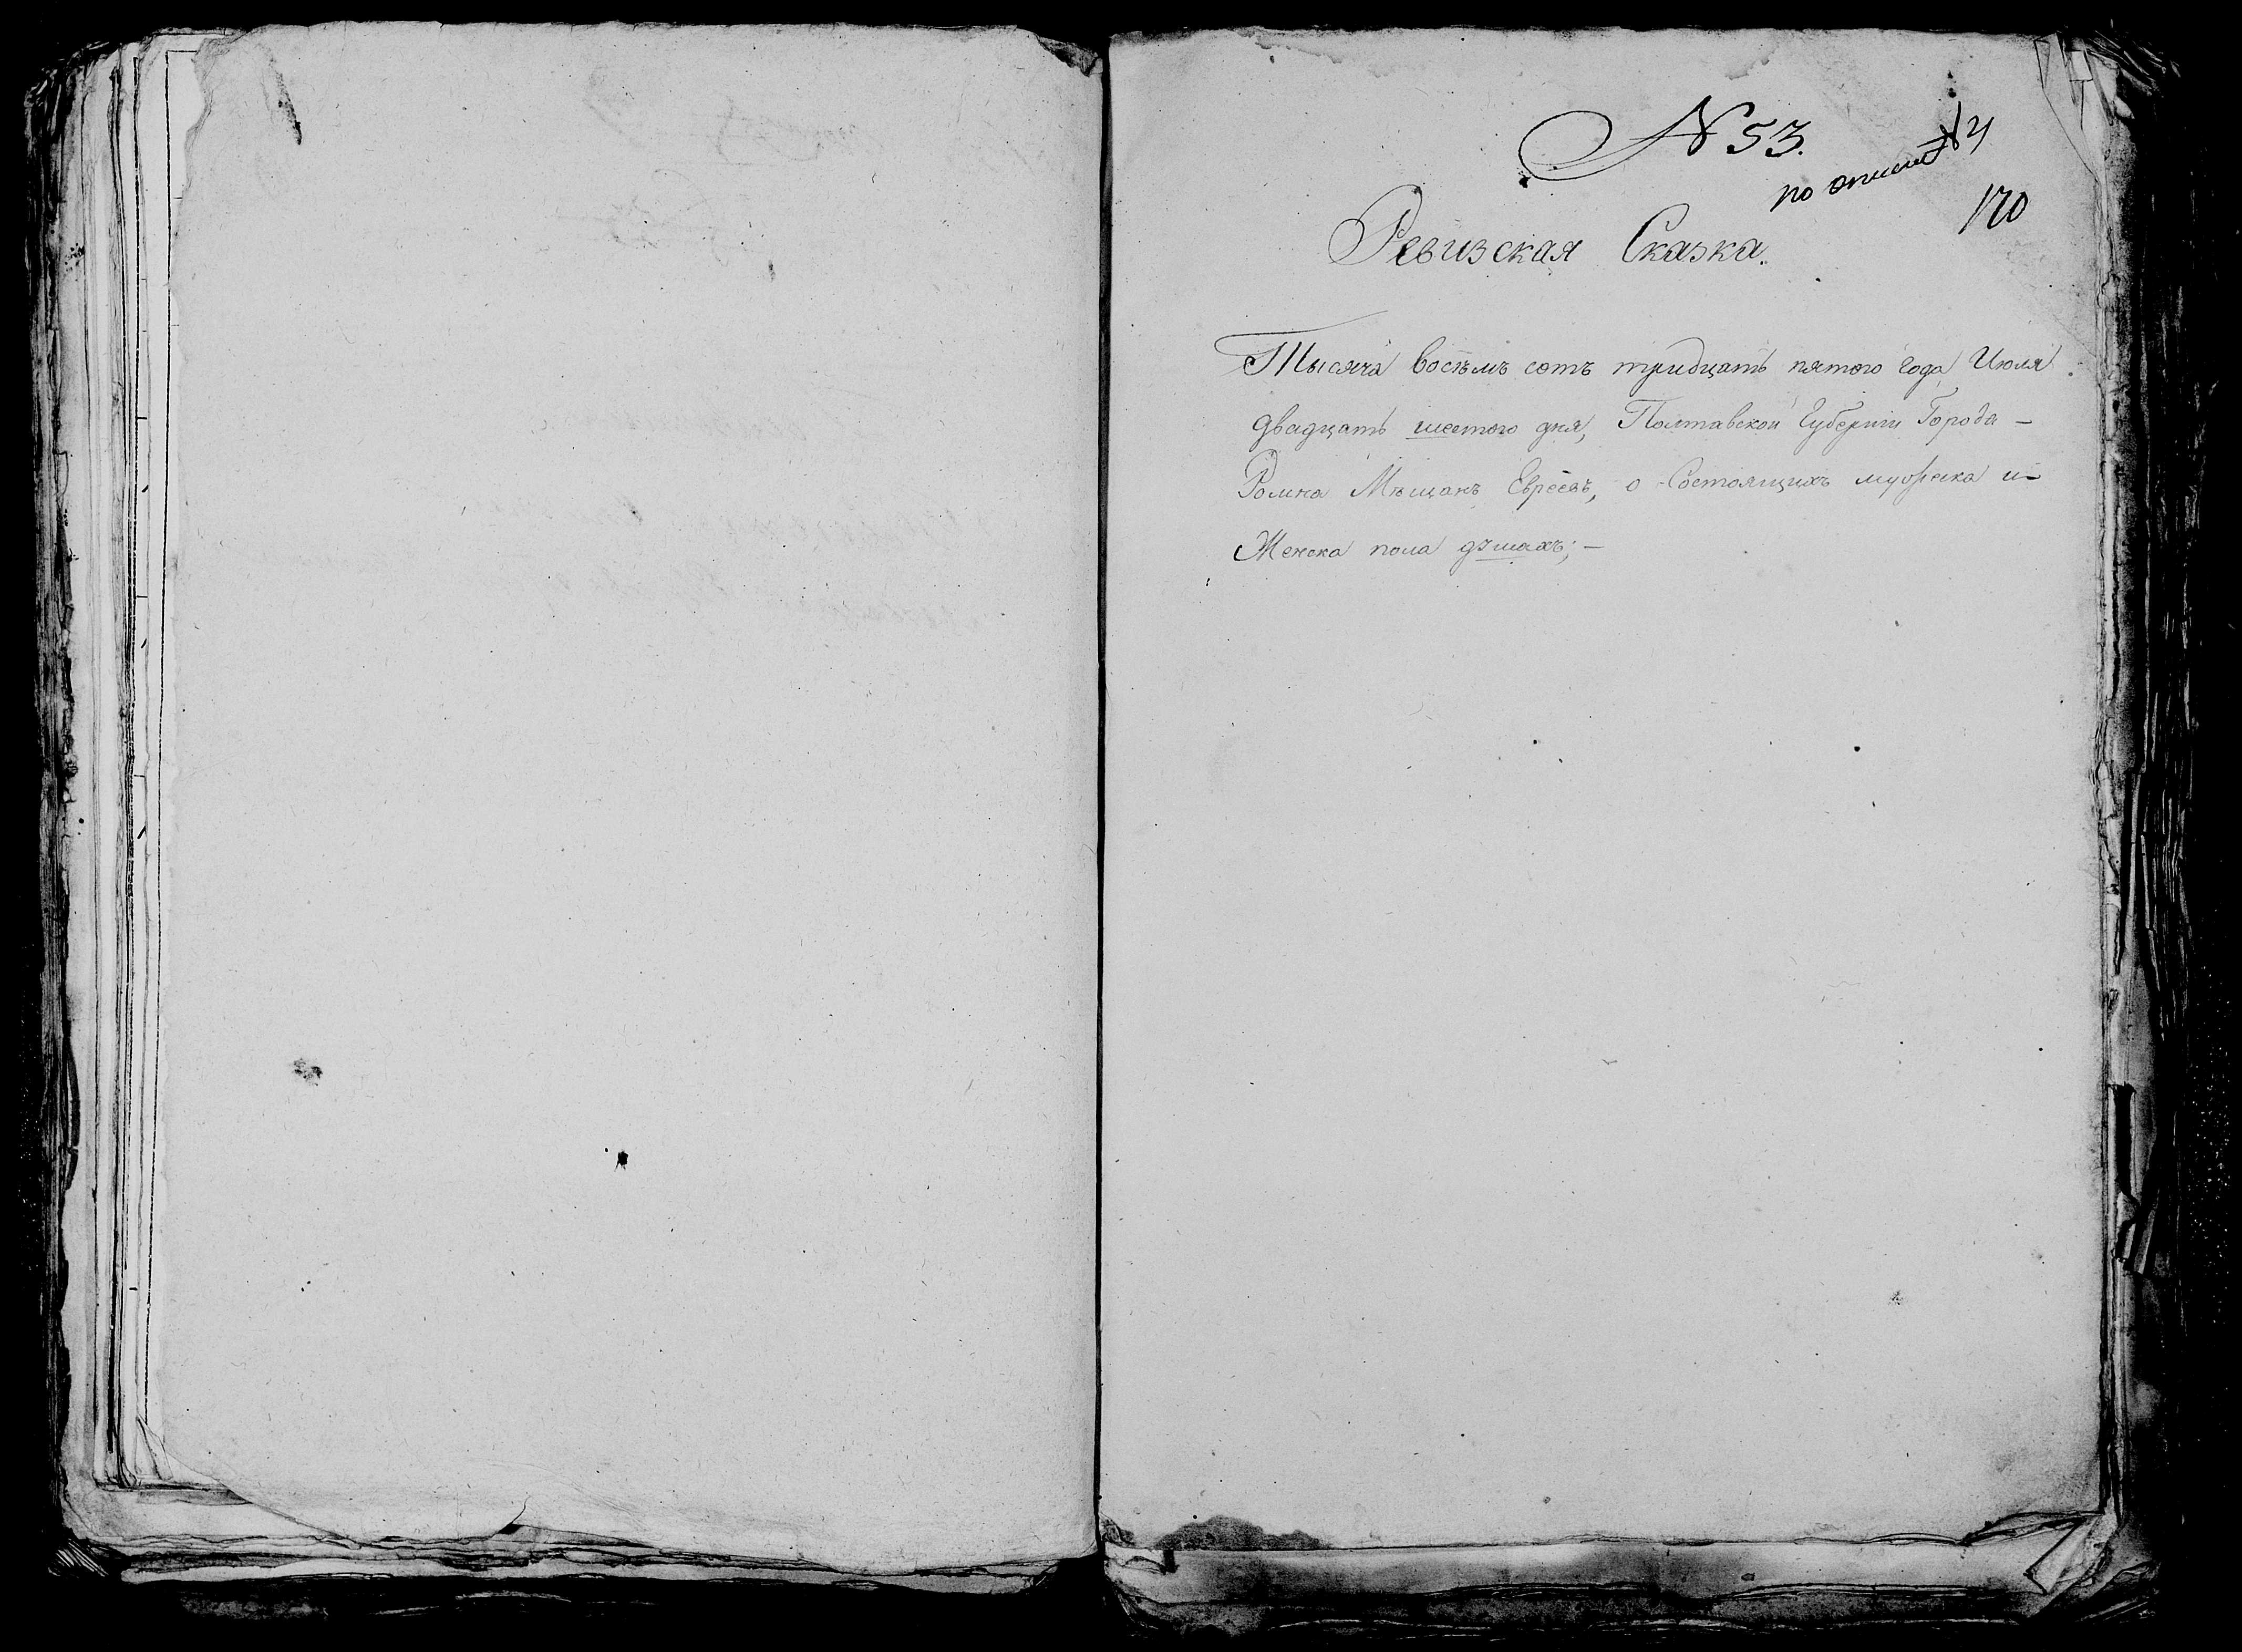 N 53.
по описи N 4
170
Ревизская Сказка.
Тысяча восѣмъ сотъ тридцать пятого года Июля
двадцать шестого дня, Полтавской Губернии Города –
Ромна Мѣщанъ Евреевъ, о Состоящихъ мужеска и –
Женска пола душахъ; –